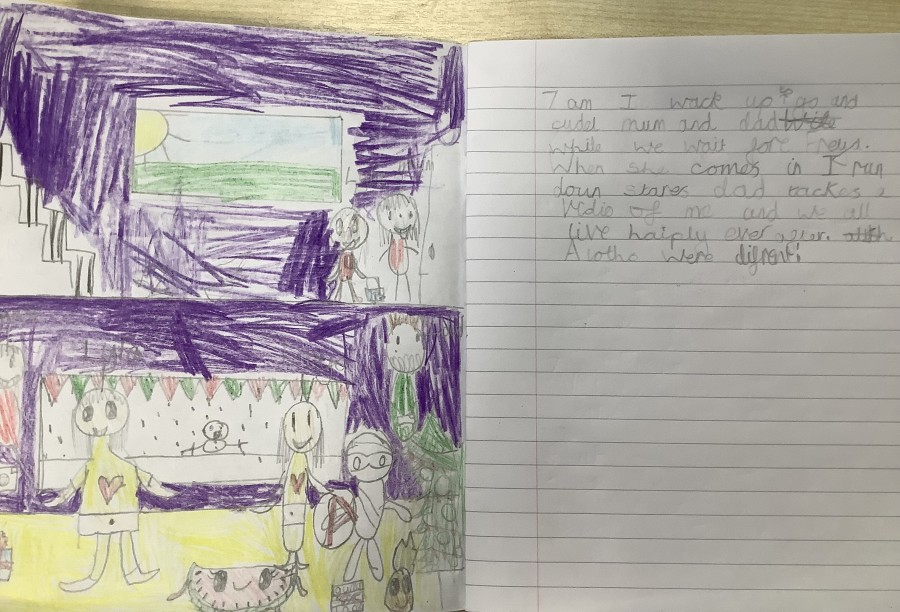 7 am I wack up go and
cudel mum and dad
while we wait fore reys.
When she comes in I run
doun stares dad tackes a
Vedio of me and we all
live haiply ever after.
A lotho were difrent!
A